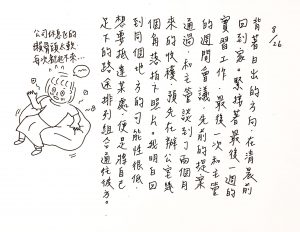 8/26
背著日出的方向在清晨前
回到家，緊接著最後一週的
實習工作。最後一次和主管
的週間會議，先前的提案
和主管談到了兩個月
來的快樂，預先在辦公室幾
個角落拍下照片。我明白回
到同個地方的可能性很低。
想要抵達某處，便是將自己
足下的路途排列組合通往彼方。
公司休息區的
懶骨頭太軟
每次都起不來...